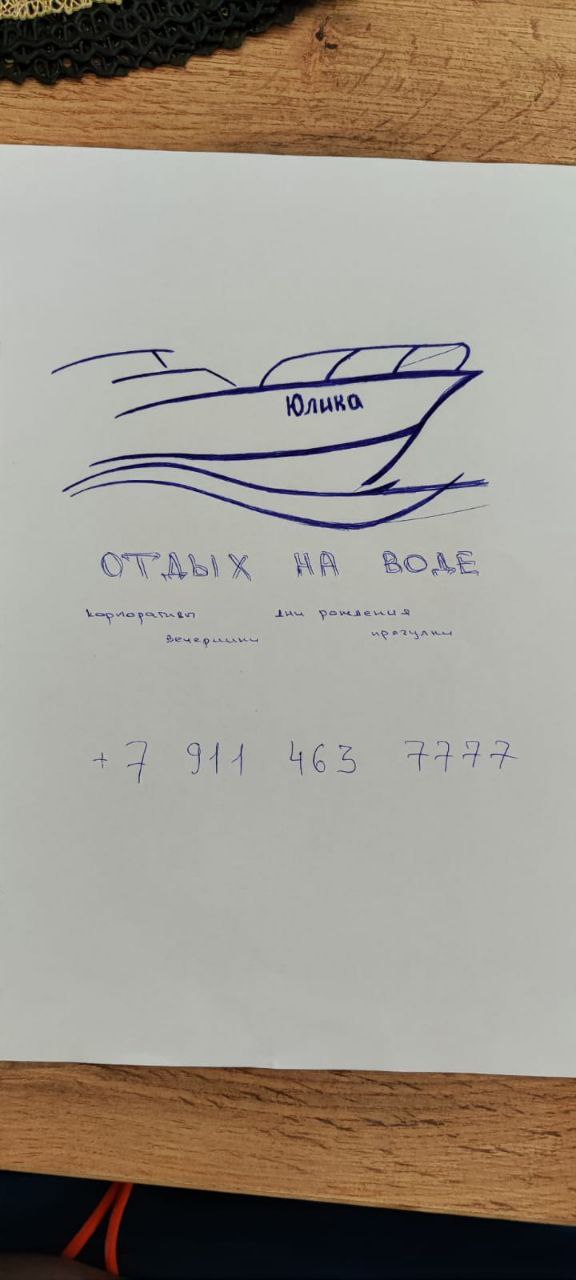 Юлика
ОТДЫХ НА ВОДЕ
корпоративы дни рождения
вечеринки прогулки
+7 911 463 7777